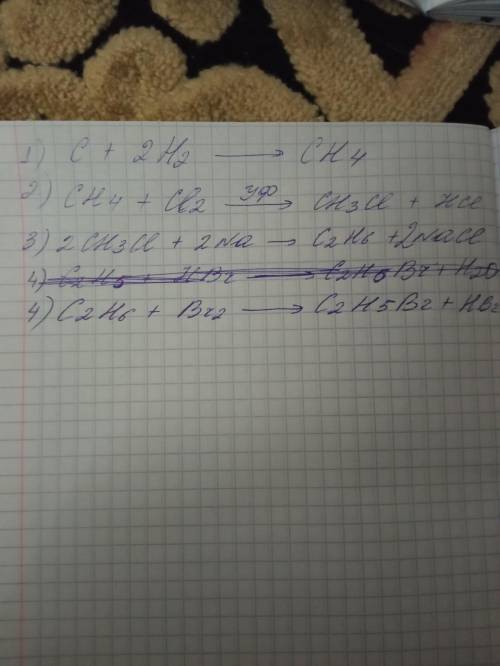 1) C + 2H2 ⟶ CH4
2) CH4 + Cl2 ⟶ УФ CH3Cl + HCl
3) 2CH3Cl + 2Na → C2H6 + 2NaCl
4) C2H5 + HBr ⟶ C2H5Br + H2O
4) C2H6 + Br2 ⟶ C2H5Br + HBr